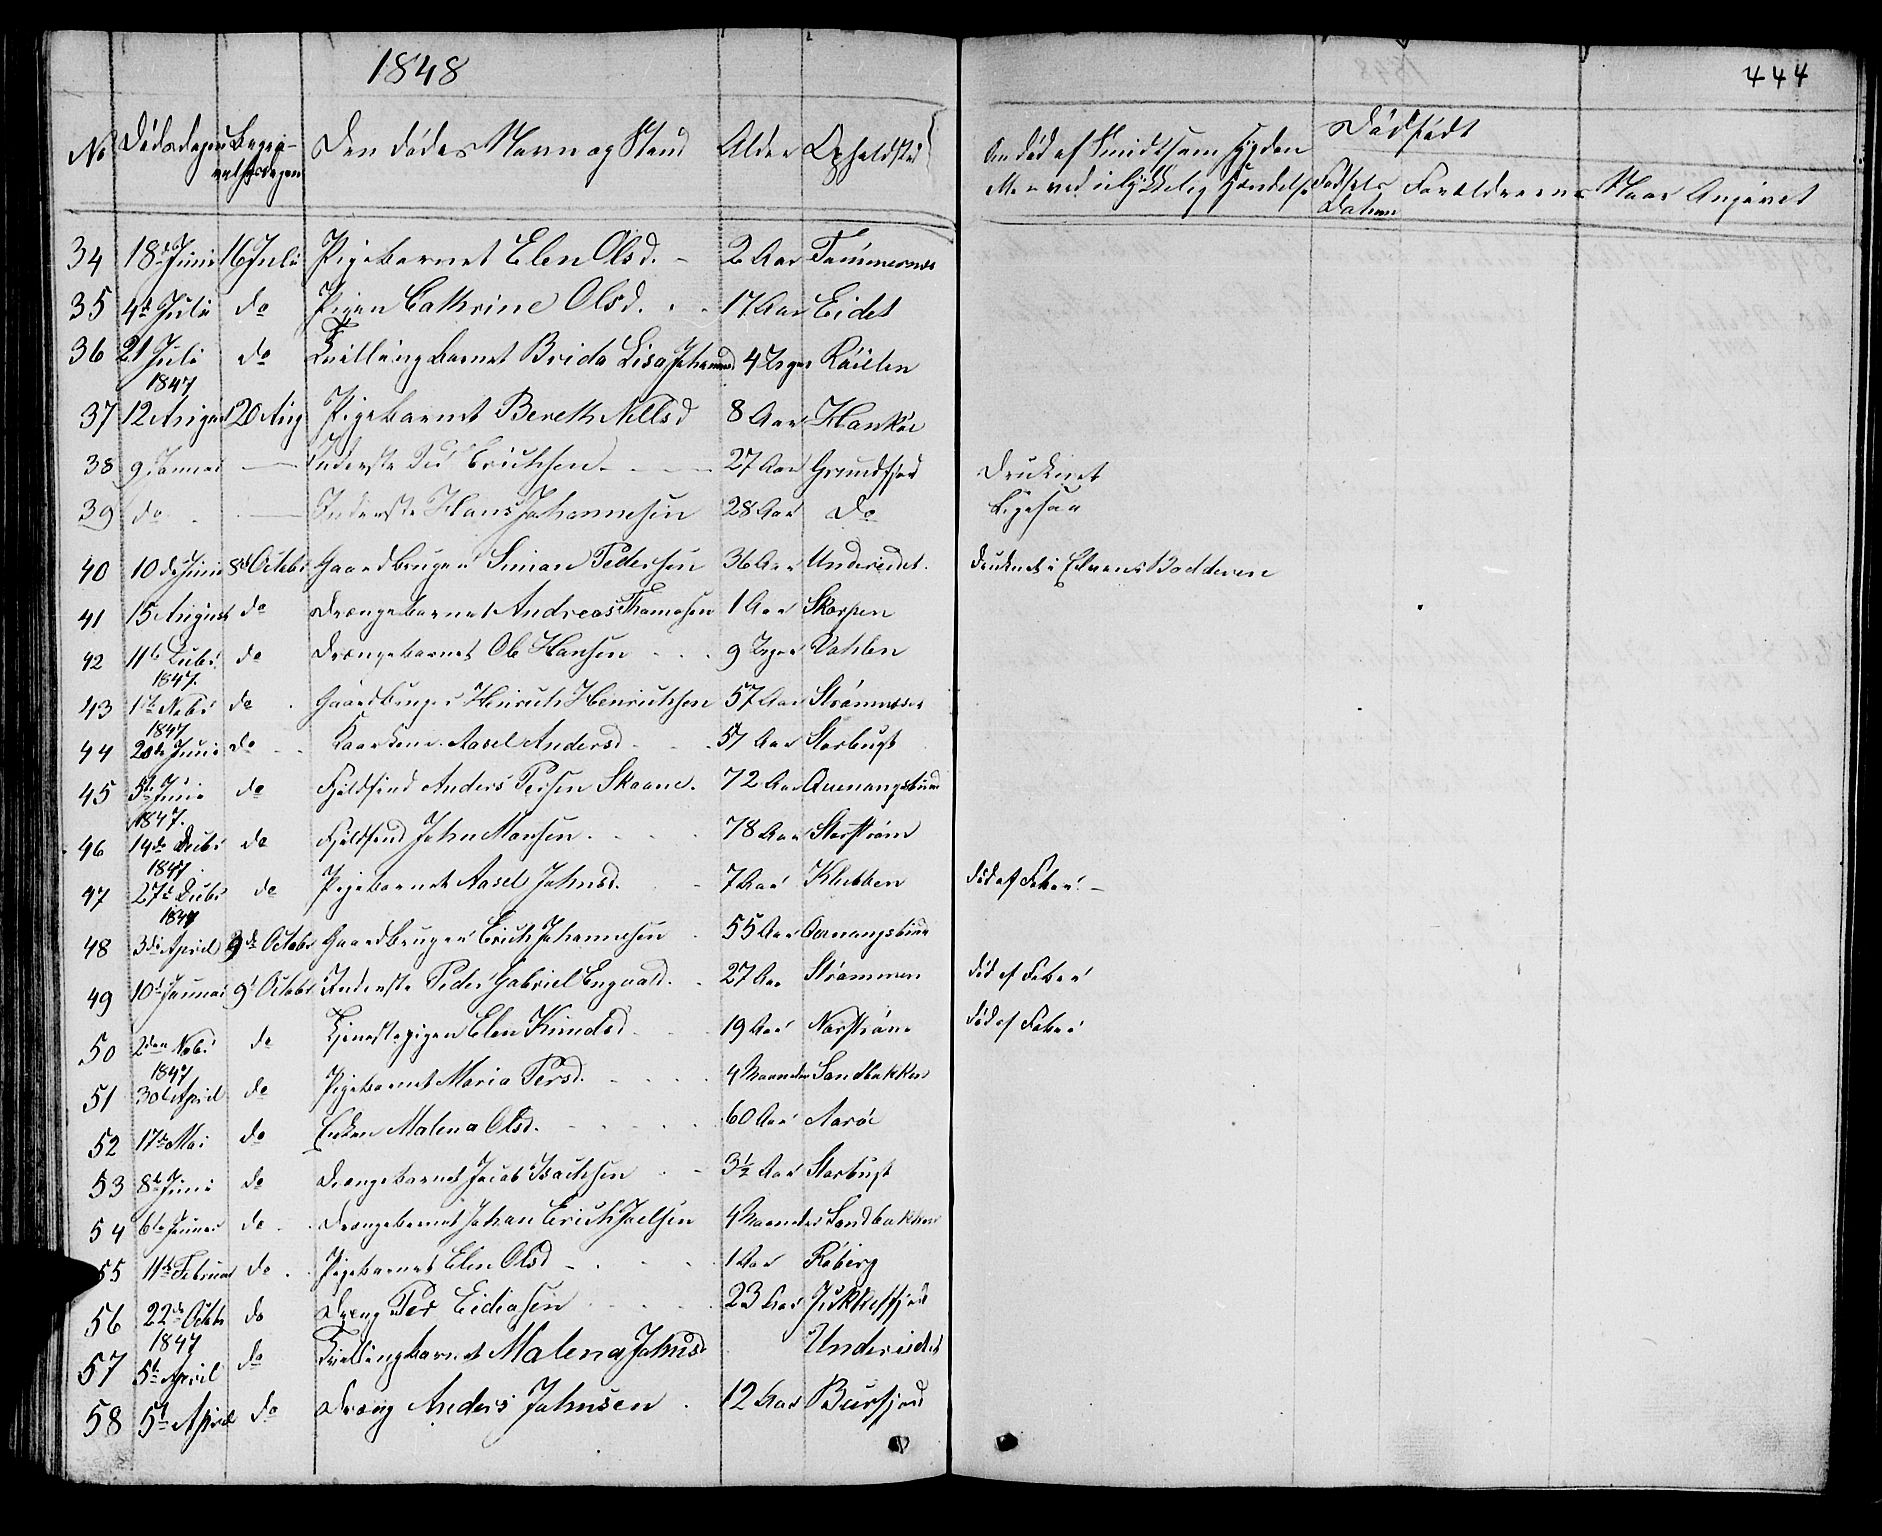 1848
444
No Dödsdagen Begra-velsesdagen Den dödes Navn og Stand Alder Opholdsted Om død af Smidtsom Sygdom eller ved ulykkelig Hændelse Dødfødt Fødsels Datum Forældrene Naar Angivet
34 18de Juni 16 Juli Pigebarnet Elen Olsd. 2 Aar Tømmernes
35 4de Juli do Pigen Cathrine Olsd. 17 Aar Eidet
36 21 Juli do Tvillingbarnet Brida Lisa Johannesd 4 Uger Röielen
1847
37 12 August 20 Aug Pigebarnet Bereth Nilsd 8 Aar Haukøe
38 9 Januar — Inderste Erichsen 27 Aar Grundfjord Druknet
39 do — Inderste Hans Johannesen 28 Aar do Ligesaa
40 10de Juni 8de Octobr Gaardbruger Simon Pedersen 36 Aar Undereidet. Druknet i Elvens
41 15 August do Drengebarnet Andreas Thomasen 1 Aar Skorpen
42 11te do Drengebarnet Ole Hansen 9 Uger Vahlen
1847.
43 1te Nobr do Gaardbruger Henrich Henrichsen 57 Aar Strømneser
1847
44 20de Juni do Kaarkone Aasel Andersd 57 Aar Storbugt
45 5te Juni do Fjeldfind Anders Persen Skaane. 72 Aar Qvenangsbund
1847.
46 14de Decbr do Fjeldfind John Monsen 78 Aar Storstrøm
1847
47 27de Decbr do Pigebarnet Aasel Johnsd. 7 Aar Klubben Død af Feber
1847
48 3de April 9de Octobr Gaardbruger Erich Johannesen 55 Aar Qvenangsbund
49 10de Januar 9de Octobr Inderste Peder Gabriel Engvald. 27 Aar Strømmen Død af Feber
50 2den Nobr do Tjenestepigen Elen Knudsd 19 Aar Norstrøm Død af Feber
1847
51 30te April do Pigebarnet Maria Persd. 4 Maaneder Sandbakken
52 17de Mai do Enken Malena Olsd. 60 Aar Aarøe
53 8de Juni do Drengebarnet Jacob Isachsen 3½ Aar Storbugt
54 6te Januar do Drengebarnet Johan Erich Joelsen 4 Maaneder Sandbakken
55 11te Februar do Pigebarnet Elen Olsd 1 Aar Røberg
56 22de Octbr do Dreng Per Eidiasen 23 Aar Jøkkelfjord
1847
57 5te April do Tvillingbarnet Malena Johnsd Undereidet
58 5te April do Dreng Anders Johnsen 12 Aar Burfjord